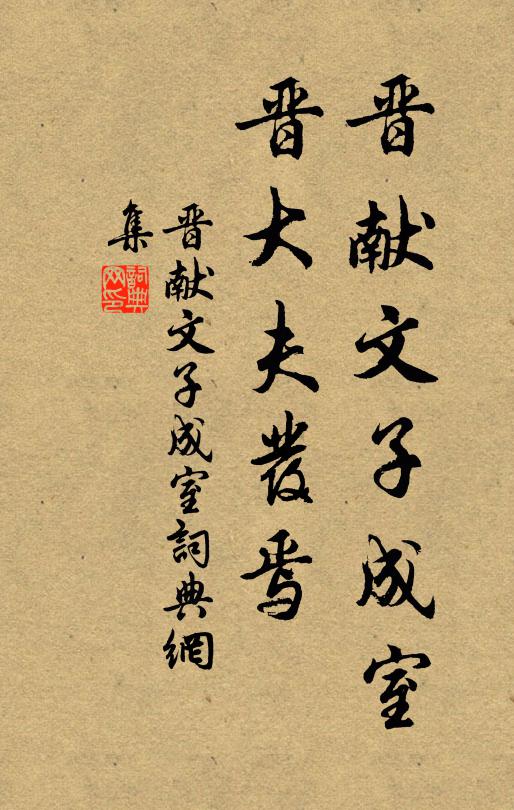 晋献文子成室
晋大夫發焉
晋献文子成室詞典網
集
詞典网印